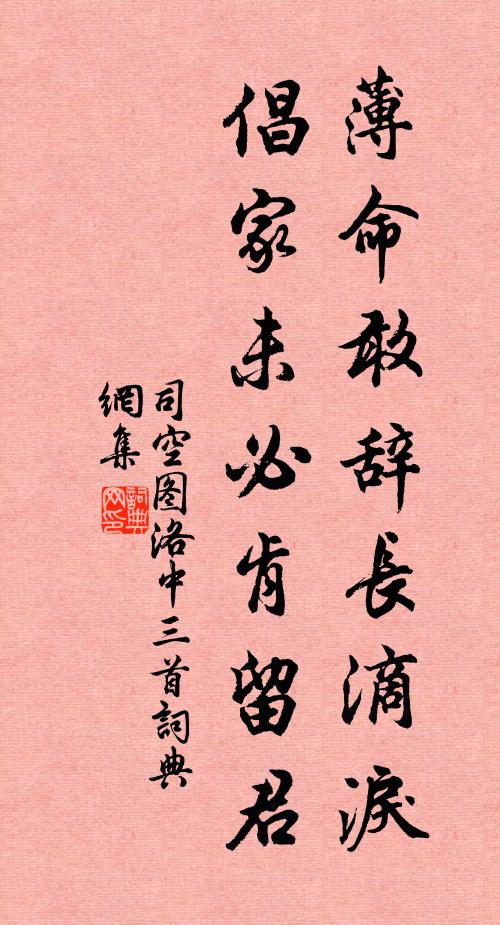 薄命敢辞長滴淚
倡家未必肯留君
司空图洛中三首詞典
網集
詞典
网印